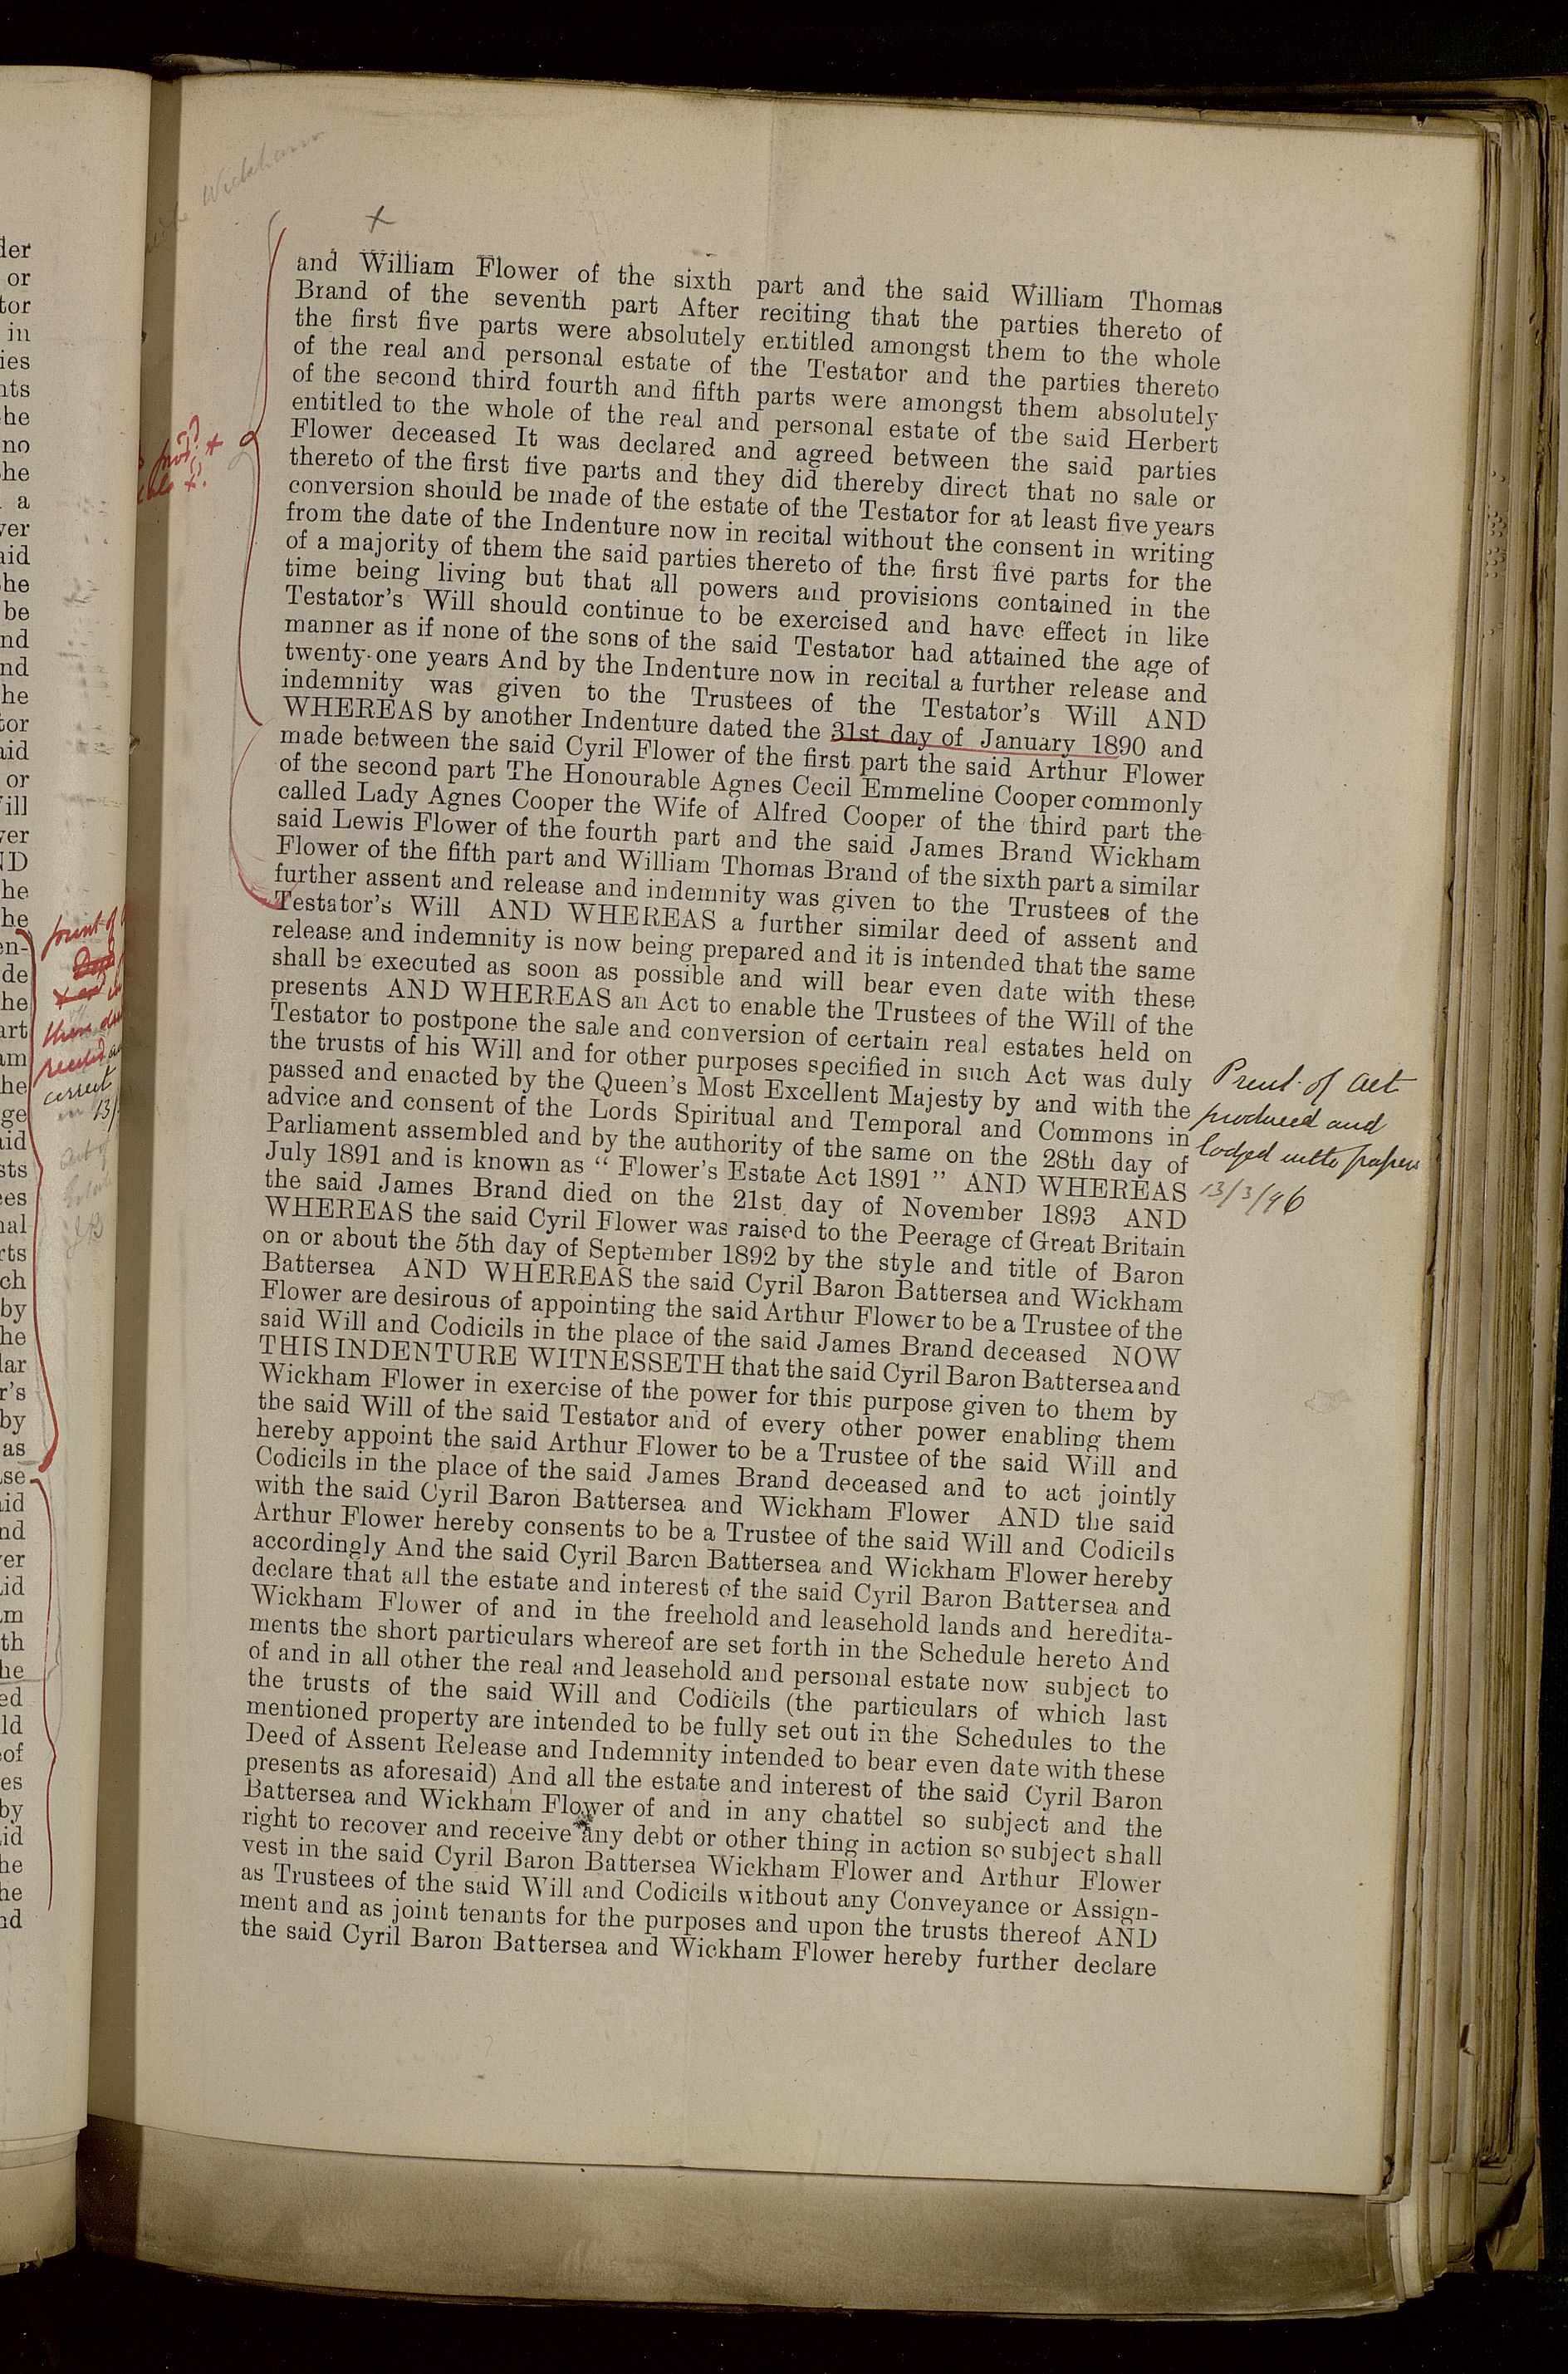 Wickham
and William Flower of the sixth part and the said William Thomas
Brand of the seventh part After reciting that the parties thereto of
the first five parts were absolutely entitled amongst them to the whole
of the real and personal estate of the Testator and the parties thereto
of the second third fourth and fifth parts were amongst them absolutely
entitled to the whole of the real and personal estate of the said Herbert
Flower deceased It was declared and agreed between the said parties
thereto of the first five parts and they did thereby direct that no sale or
conversion should be made of the estate of the Testator for at least five years
from the date of the Indenture now in recital without the consent in writing
of a majority of them the said parties thereto of the first five parts for the
time being living but that all powers and provisions contained in the
Testator's Will should continue to be exercised and have effect in like
manner as if none of the sons of the said Testator had attained the age of
twenty-one years And by the Indenture now in recital a further release and
indemnity was given to the Trustees of the Testator's Will AND
WHEREAS by another Indenture dated the 31st day of January 1890 and
made between the said Cyril Flower of the first part the said Arthur Flower
of the second part The Honourable Agnes Cecil Emmeline Cooper commonly
called Lady Agnes Cooper the Wife of Alfred Cooper of the third part the
said Lewis Flower of the fourth part and the said James Brand Wickham
Flower of the fifth part and William Thomas Brand of the sixth part a similar
further assent and release and indemnity was given to the Trustees of the
Testator's Will AND WHEREAS a further similar deed of assent and
release and indemnity is now being prepared and it is intended that the same
shall be executed as soon as possible and will bear even date with these
presents AND WHEREAS an Act to enable the Trustees of the Will of the
Testator to postpone the sale and conversion of certain real estates held on
the trusts of his Will and for other purposes specified in such Act was duly
passed and enacted by the Queen's Most Excellent Majesty by and with the
advice and consent of the Lords Spiritual and Temporal and Commons in
Parliament assembled and by the authority of the same on the 28th day of
July 1891 and is known as “ Flower's Estate Act 1891 ” AND WHEREAS
the said James Brand died on the 21st day of November 1893 AND
WHEREAS the said Cyril Flower was raised to the Peerage of Great Britain
on or about the 5th day of September 1892 by the style and title of Baron
Battersea AND WHEREAS the said Cyril Baron Battersea and Wickham
Flower are desirous of appointing the said Arthur Flower to be a Trustee of the
said Will and Codicils in the place of the said James Brand deceased NOW
THIS INDENTURE WITNESSETH that the said Cyril Baron Battersea and
Wickham Flower in exercise of the power for this purpose given to them by
the said Will of the said Testator and of every other power enabling them
hereby appoint the said Arthur Flower to be a Trustee of the said Will and
Codicils in the place of the said James Brand deceased and to act jointly
with the said Cyril Baron Battersea and Wickham Flower AND the said
Arthur Flower hereby consents to be a Trustee of the said Will and Codicils
accordingly And the said Cyril Baron Battersea and Wickham Flower hereby
declare that all the estate and interest of the said Cyril Baron Battersea and
Wickham Flower of and in the freehold and leasehold lands and heredita-
ments the short particulars whereof are set forth in the Schedule hereto And
of and in all other the real and leasehold and personal estate now subject to
the trusts of the said Will and Codicils (the particulars of which last
mentioned property are intended to be fully set out in the Schedules to the
Deed of Assent Release and Indemnity intended to bear even date with these
presents as aforesaid) And all the estate and interest of the said Cyril Baron
Battersea and Wickham Flower of and in any chattel so subject and the
right to recover and receive any debt or other thing in action so subject shall
vest in the said Cyril Baron Battersea Wickham Flower and Arthur Flower
as Trustees of the said Will and Codicils without any Conveyance or Assign-
ment and as joint tenants for the purposes and upon the trusts thereof AND
the said Cyril Baron Battersea and Wickham Flower hereby further declare
Print of Act
produced and
lodged with papers
13/3/96